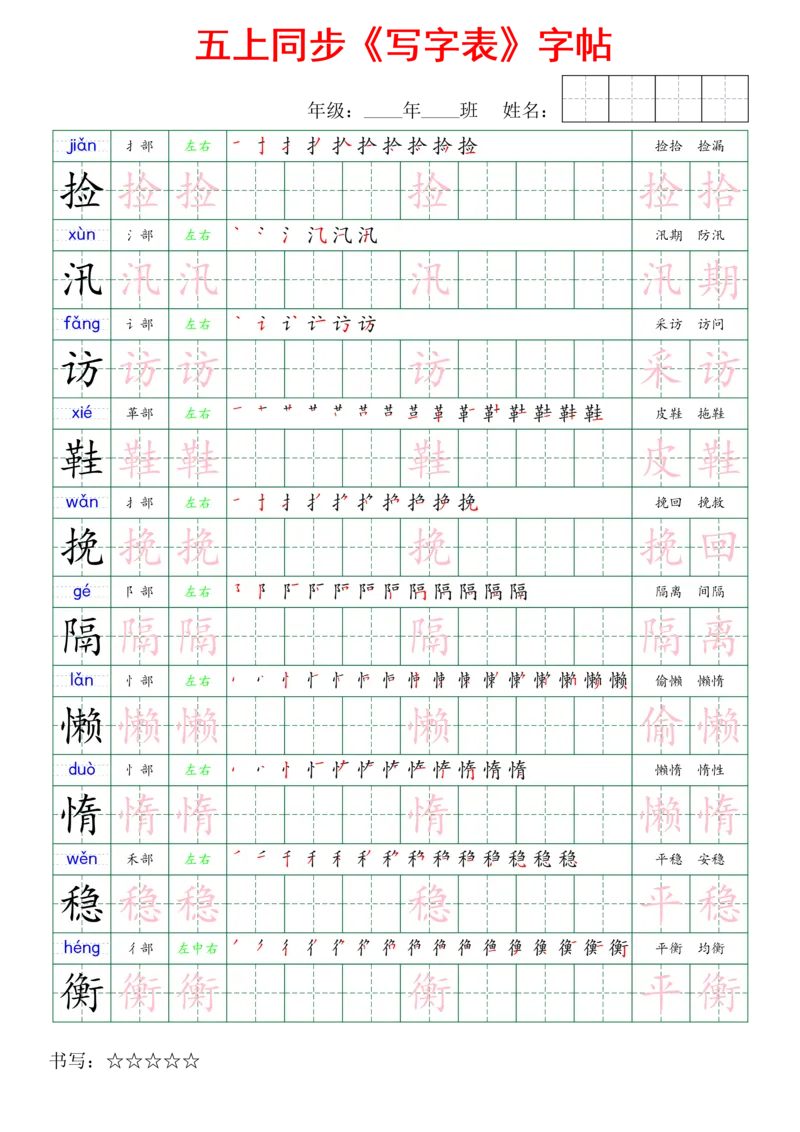 五上同步《写字表》字帖
年级：____年____班 姓名：
jiǎn 扌部 左右 捡拾 捡漏
捡 捡 捡 捡 捡 拾
xùn 氵部 左右 汛期 防汛
汛 汛 汛 汛 汛 期
fǎng 讠部 左右 采访 访问
访 访 访 访 采 访
xié 革部 左右 皮鞋 拖鞋
鞋 鞋 鞋 鞋 皮 鞋
wǎn 扌部 左右 挽回 挽救
挽 挽 挽 挽 挽 回
gé 阝部 左右 隔离 间隔
隔 隔 隔 隔 隔 离
lǎn 忄部 左右 偷懒 懒惰
懒 懒 懒 懒 偷 懒
duò 忄部 左右 懒惰 惰性
惰 惰 惰 惰 懒 惰
wěn 禾部 左右 平稳 安稳
稳 稳 稳 稳 平 稳
héng 彳部 左中右 平衡 均衡
衡 衡 衡 衡 平 衡
书写：☆☆☆☆☆